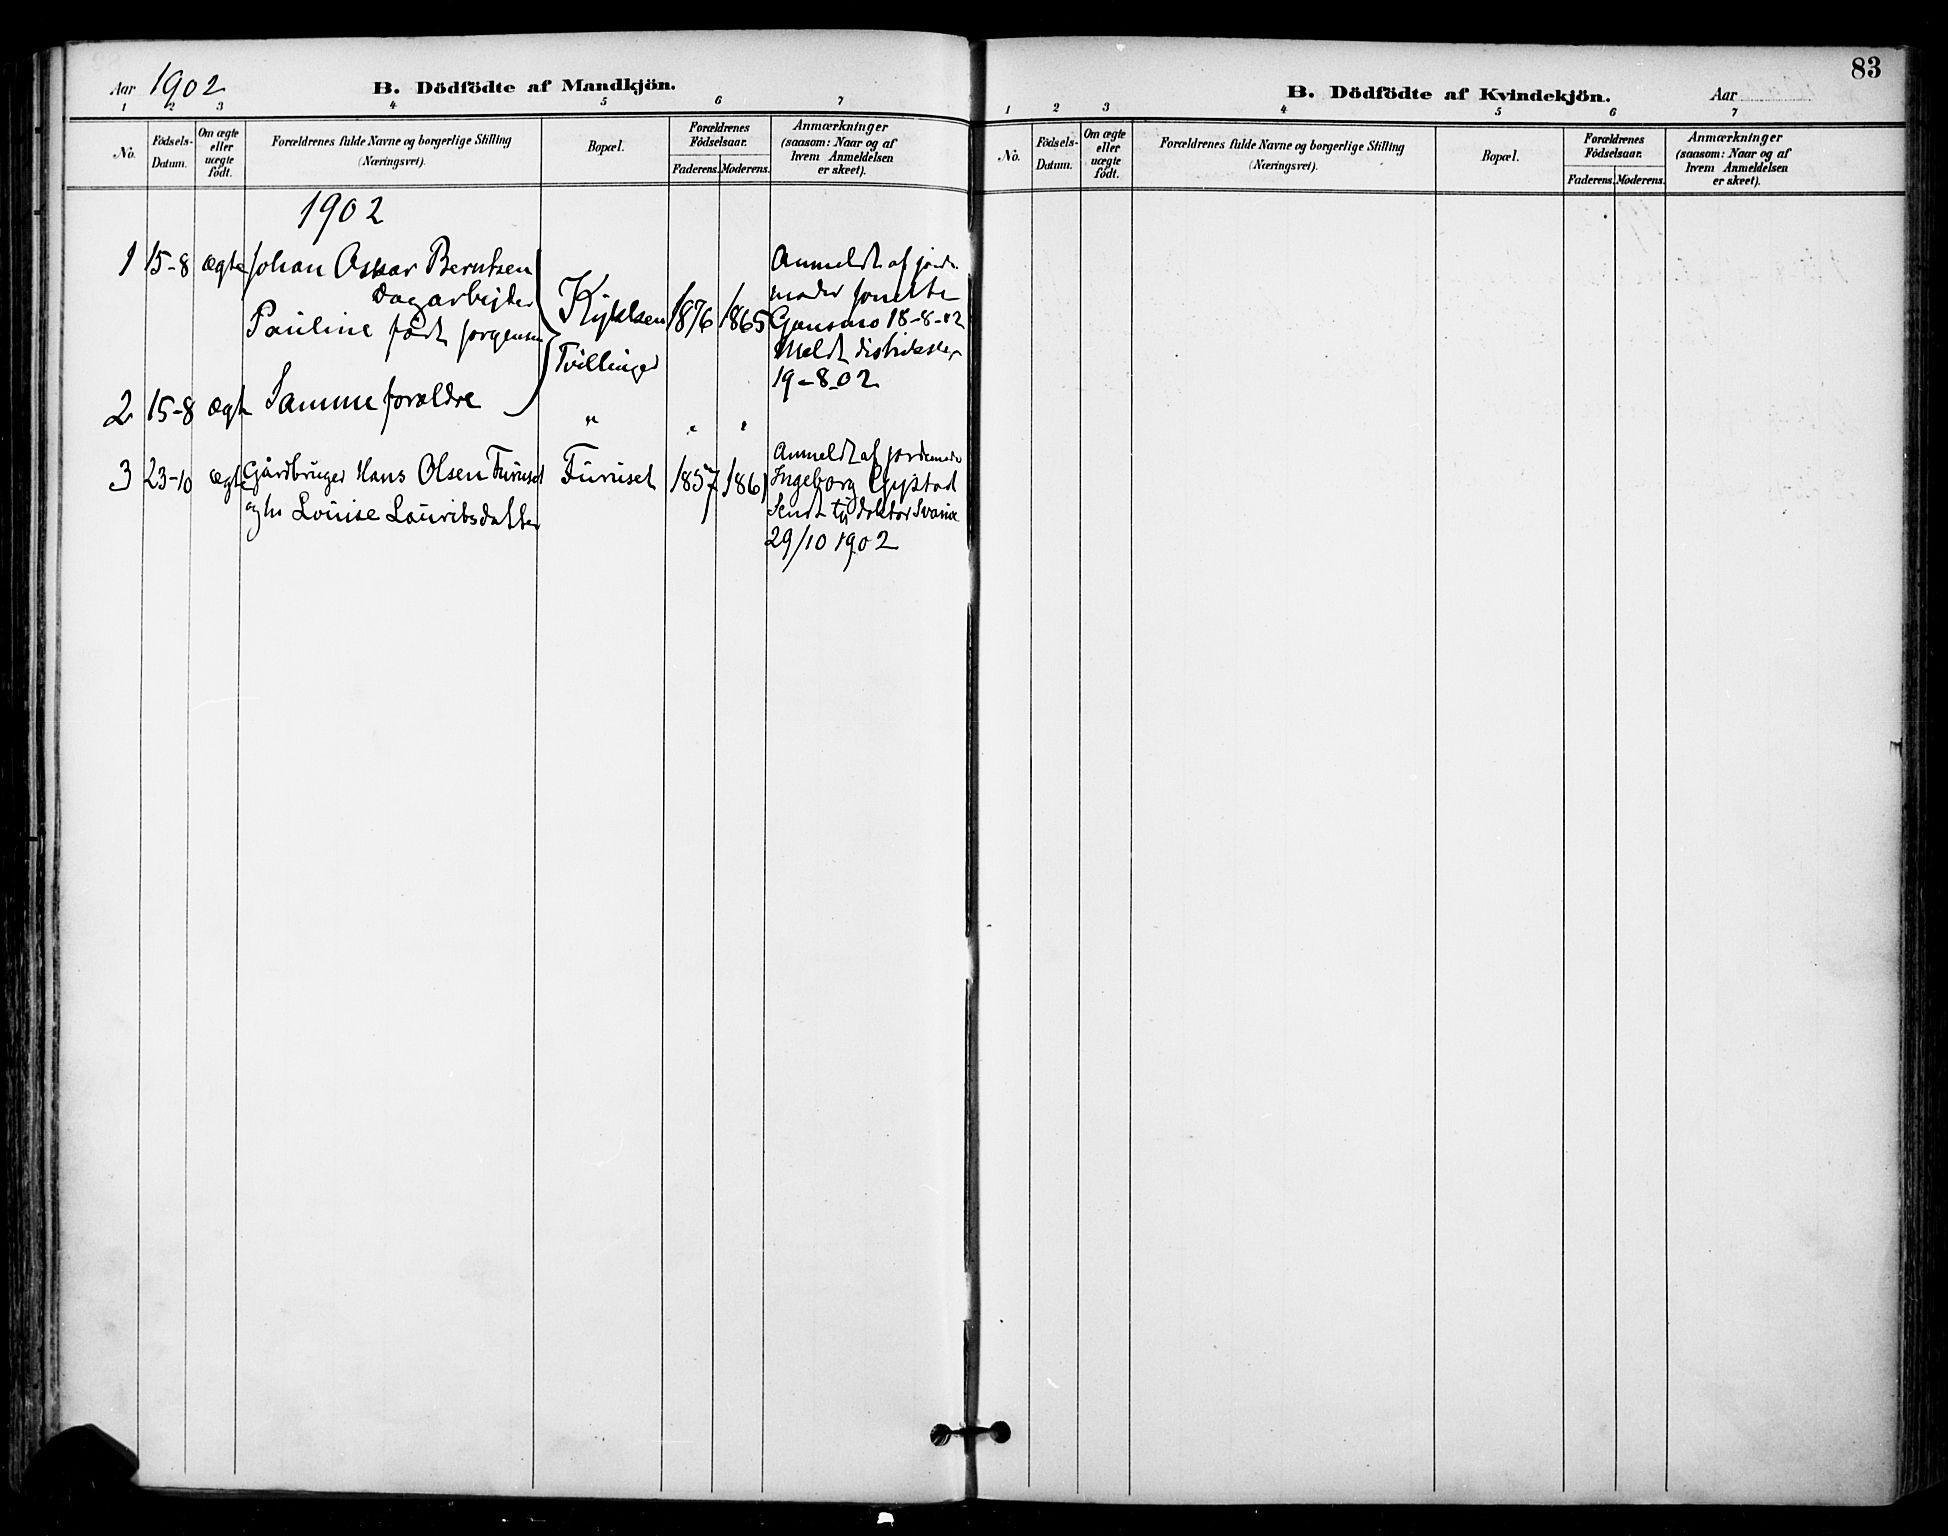 Aar 1902
B. Dödfödte af Mandkjön.
1 2 3 4 5 6 7
No.
Födsels-
Datum.
Om ægte
eller
uægte
födt.
Forældrenes fulde Navne og borgerlige Stilling
(Næringsvei).
Bopæl.
Forældrenes
Födselsaar.
Faderens. Moderens.
Anmærkninger
(saasom: Naar og af
hvem Anmeldelsen
er skeet).
1902
1 15-8 ægte Johan Oskar Berntsen
dagarbejder
Pauline født Jørgensen
Tvillinger
1876 1865
Anmeldt af jorde-
moder
18-8-02
Meldt
19-8-02
2 15-8 ægte Samme forældre
" " "
3 23-10 ægte Gårdbruger Hans Olsen Furuset
og hu Louise Lauritsdatter
Furuset
1857 1861
Anmeldt af jordemoder
Ingeborg
Sendt doktor
29/10 1902
83
B. Dödfödte af Kvindekjön.
Aar
1 2 3 4 5 6 7
No.
Födsels-
Datum.
Om ægte
eller
uægte
födt.
Forældrenes fulde Navne og borgerlige Stilling
(Næringsvei).
Bopæl.
Forældrenes
Födselsaar.
Faderens. Moderens.
Anmærkninger
(saasom: Naar og af
hvem Anmeldelsen
er skeet).